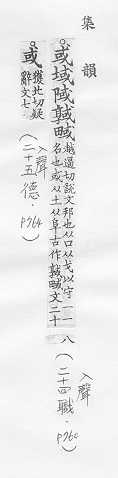 集韻
或域
越逼切說文邦也从口从戈以守一一
也或从土从阜古作 文二十
八(二十四職.p760)
入聲
或
穫北切疑
辭文七
(二十五德.p764)
入聲